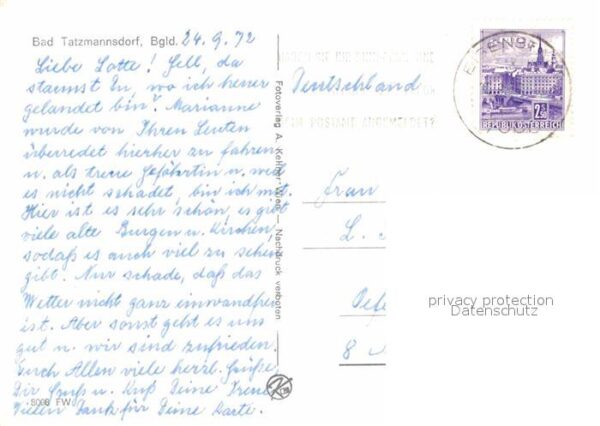 Bad Tatzmannsdorf, Bgld. 24.9.72
Liebe Lotte! Gell, da
staunst Du, wo ich heuer
gelandet bin? Marianne
wurde von Ihren Leuten
überredet hierher zu fahren
u. als treue Gefährtin u. weil
es nicht schadet, bin ich mit.
Hier ist es sehr schön, es gibt
viele alte Burgen u. Kirchen,
sodaß es auch viel zu sehen
gibt. Nur schade, daß das
Wetter nicht ganz einwandfrei
ist. Aber sonst geht es uns
gut u. wir sind zufrieden.
Euch Allen viele herzl. Grüße
Dir Gruß u. Kuß Deine Trene
Vielen Dank für Deine Karte.
8008 FW
Fotoverlag A. Kellner, Wien — Nachdruck verboten
Deutschland
POSTAMT ANGEMELDET?
2.50
REPUBLIK ÖSTERREICH
Frau
L.
8
privacy protection
Datenschutz